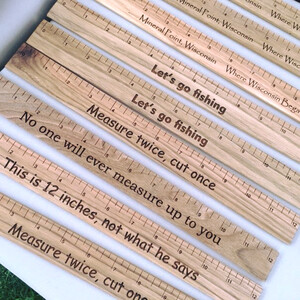 Mineral Point, Wisconsin Where Wisconsin
Mineral Point, Wisconsin Where Wisconsin Began
Let's go fishing
Let's go fishing
Measure twice, cut once
No one will ever measure up to you
This is 12 inches, not what he says
Measure twice, cut once